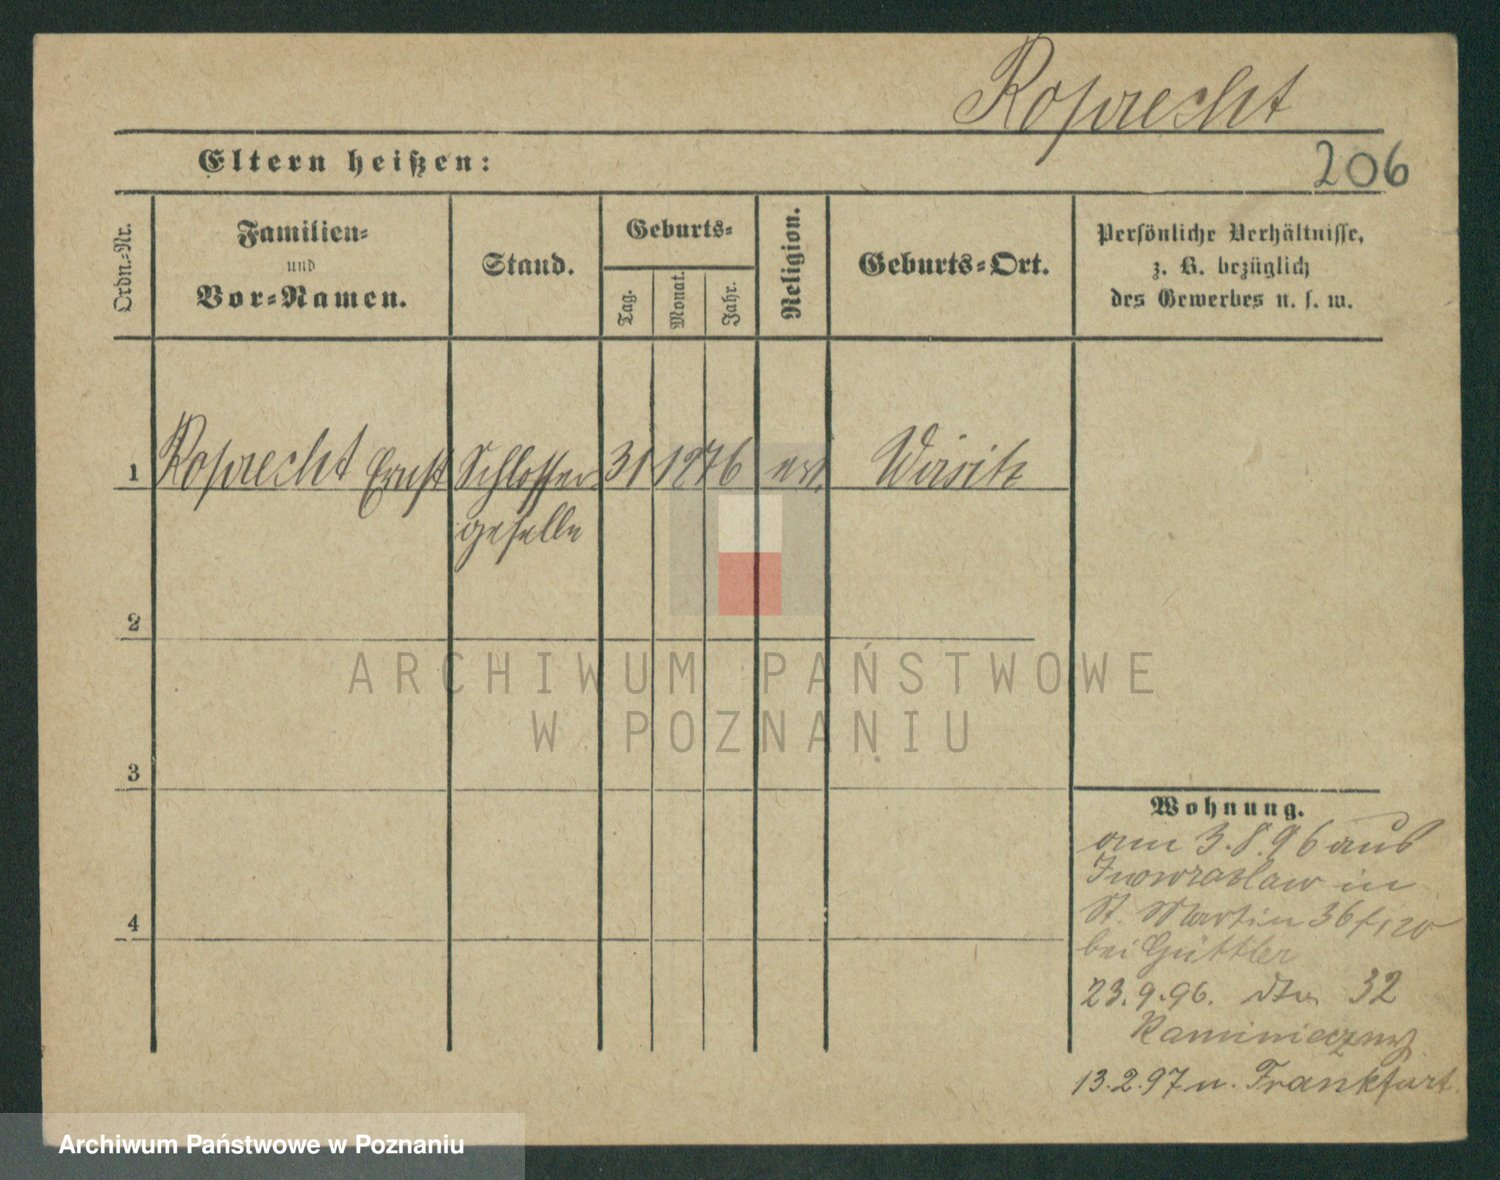 Roprecht
Eltern heißen:
206
Ordn.-Nr.
Familien-
und
Vor-Namen.
Stand.
Geburts-
Tag.
Monat.
Jahr.
Religion.
Geburts-Ort.
Persönliche Verhältnisse,
z. B. bezüglich
des Gewerbes u. s. w.
1 Roprecht Ernst Schlosser- 31 12 76 ev. Wirsitz
geselle
2
3
4
Wohnung.
am 3.8.96 aus
Inowrazlaw in
St. Martin 36
bei Güttler
23.9.96. dto 32
13.2.97 n. Frankfurt
ARCHIWUM PAŃSTWOWE
W POZNANIU
Archiwum Państwowe w Poznaniu